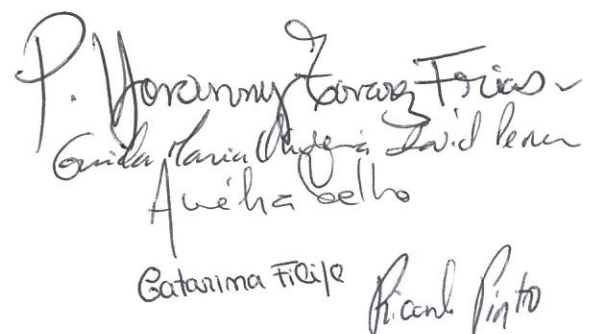 P. Yovanny Tavarez Frias
Guida Maria David
Amélia Coelho
Catarina Filipe Ricardo Pinto